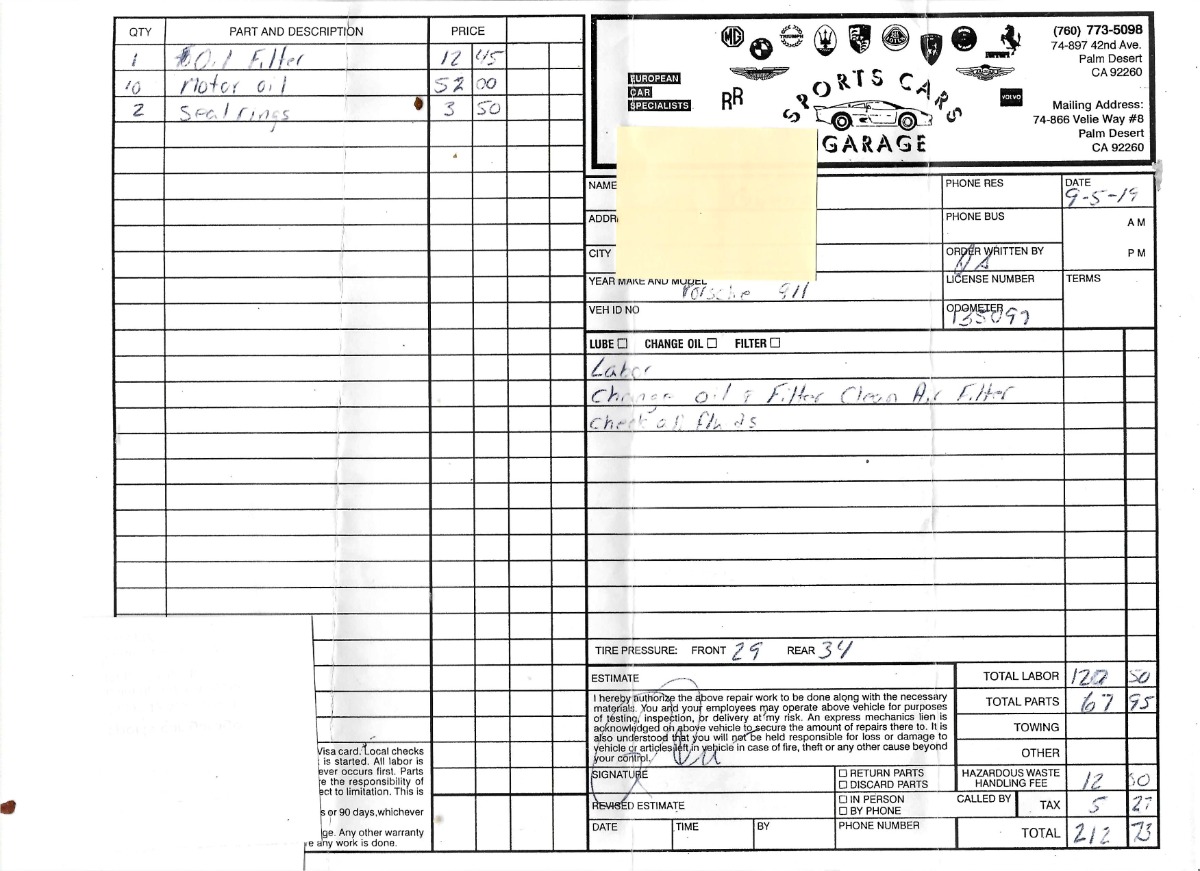 QTY PART AND DESCRIPTION PRICE
1 Oil Filter 12 45
10 Motor oil 52 00
2 Seal rings 3 50
EUROPEAN
CAR
SPECIALISTS
MG
TRIUMPH
RR
VOLVO
SPORTS CARS
GARAGE
(760) 773-5098
74-897 42nd Ave.
Palm Desert
CA 92260
Mailing Address:
74-866 Velie Way #8
Palm Desert
CA 92260
NAME PHONE RES DATE
9-5-19
ADDR PHONE BUS A M
CITY ORDER WRITTEN BY P M
YEAR MAKE AND MODEL LICENSE NUMBER TERMS
Porsche 911
VEH ID NO ODOMETER
135097
LUBE CHANGE OIL FILTER
Labor
Change oil & Filter Clean Air Filter
Check all fluids
TIRE PRESSURE: FRONT 29 REAR 34
ESTIMATE
I hereby authorize the above repair work to be done along with the necessary
materials. You and your employees may operate above vehicle for purposes
of testing, inspection, or delivery at my risk. An express mechanics lien is
acknowledged on above vehicle to secure the amount of repairs there to. It is
also understood that you will not be held responsible for loss or damage to
vehicle or articles left in vehicle in case of fire, theft or any other cause beyond
your control.
SIGNATURE
RETURN PARTS
DISCARD PARTS
REVISED ESTIMATE
IN PERSON
BY PHONE
CALLED BY
DATE TIME BY PHONE NUMBER
TOTAL LABOR 127 50
TOTAL PARTS 67 95
TOWING
OTHER
HAZARDOUS WASTE
HANDLING FEE 12
TAX 5 27
TOTAL 212 73
Visa card. Local checks
is started. All labor is
ever occurs first. Parts
e the responsibility of
ect to limitation. This is
s or 90 days,whichever
ge. Any other warranty
e any work is done.